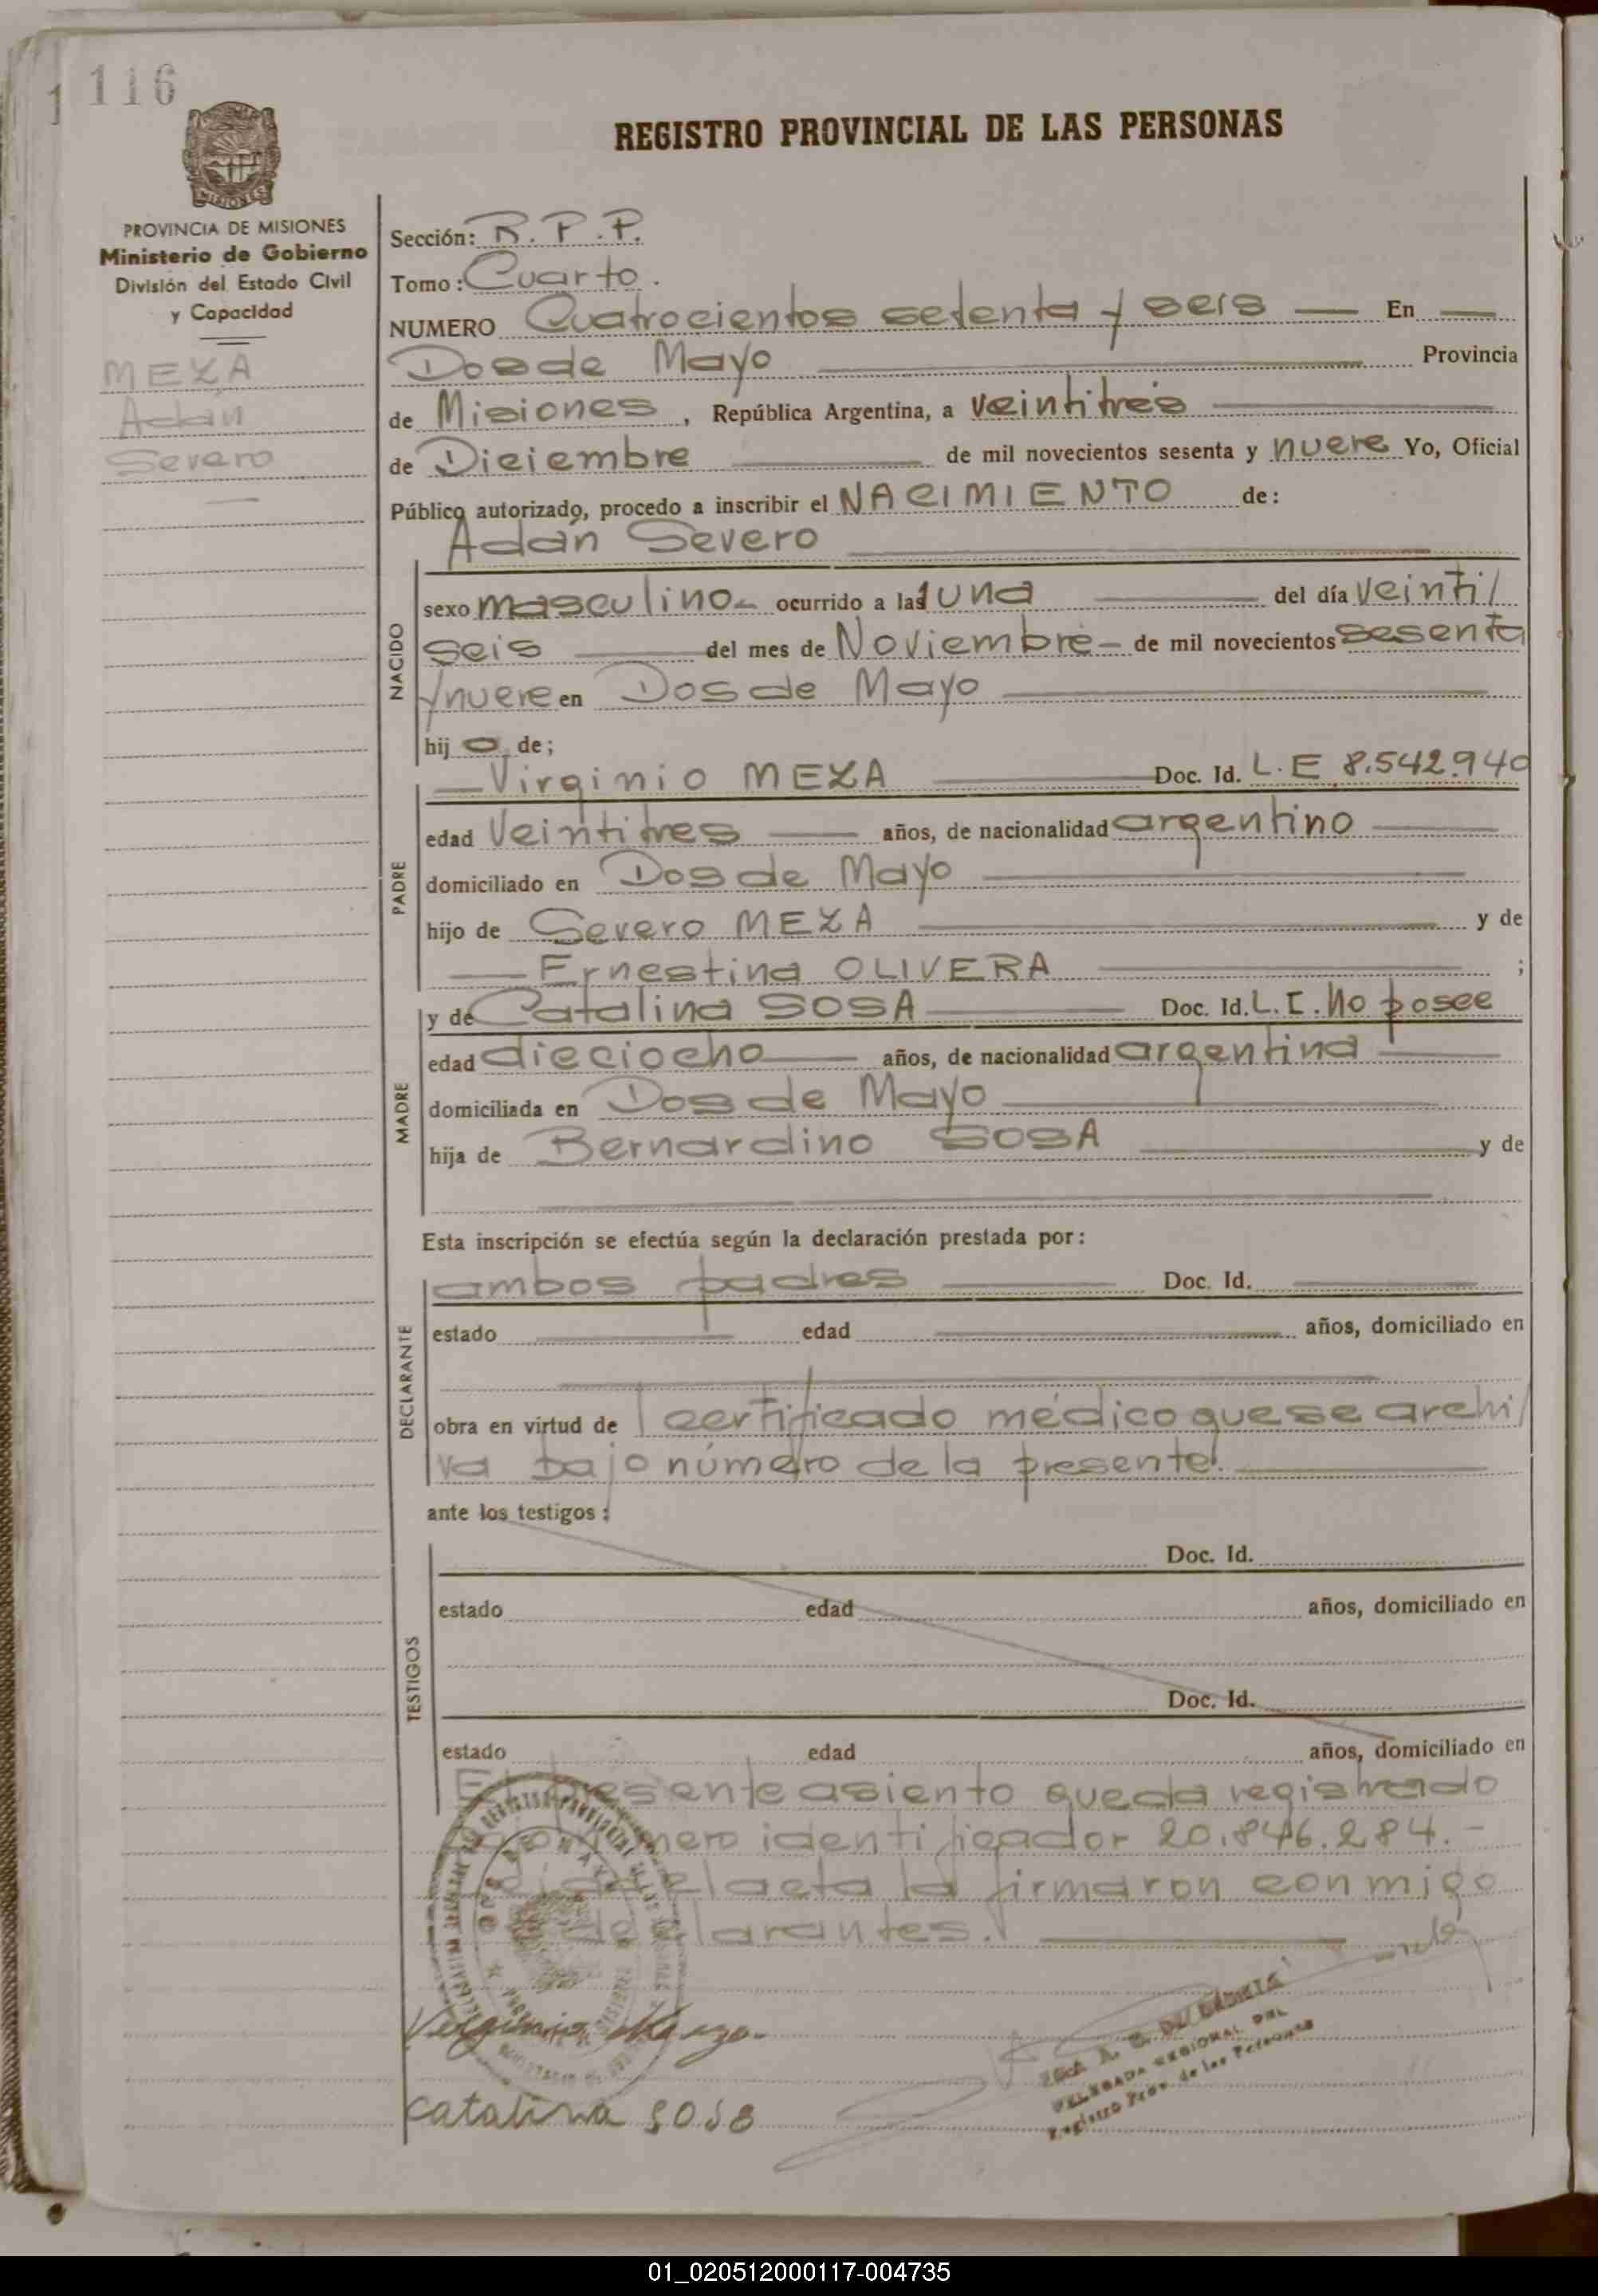 116
REGISTRO PROVINCIAL DE LAS PERSONAS
MISIONES
PROVINCIA DE MISIONES
Ministerio de Gobierno
División del Estado Civil
y Capacidad
MEZA
Adán
Severo
Sección: R. P. P.
Tomo: Cuarto.
NUMERO Cuatrocientos setenta y seis — En —
Dos de Mayo — Provincia
de Misiones, República Argentina, a veintitrés
de Diciembre — de mil novecientos sesenta y nueve Yo, Oficial
Público autorizado, procedo a inscribir el NACIMIENTO de:
Adán Severo —
NACIDO
sexo masculino - ocurrido a las 1 una — del día veinti/
seis — del mes de Noviembre - de mil novecientos sesenta
y nueve en Dos de Mayo —
hij o de;
PADRE
— Virginio MEZA — Doc. Id. L. E 8.542.940
edad Veintitres — años, de nacionalidad argentino —
domiciliado en Dos de Mayo —
hijo de Severo MEZA — y de
— Ernestina OLIVERA — ;
MADRE
y de Catalina SOSA — Doc. Id. L. C. No posee
edad dieciocho — años, de nacionalidad argentina —
domiciliada en Dos de Mayo —
hija de Bernardino SOSA — y de
Esta inscripción se efectúa según la declaración prestada por:
DECLARANTE
ambos padres — Doc. Id. —
estado — edad — años, domiciliado en
obra en virtud de certificado médico que se archi/
va bajo número de la presente. —
ante los testigos:
TESTIGOS
Doc. Id.
estado edad años, domiciliado en
Doc. Id.
estado edad años, domiciliado en
El presente asiento queda registrado
número identificador 20.846.284. -
el acta la firmaron conmigo
declarantes. —
Virginio Meza
Catalina sosa
DELEGADA REGIONAL DEL
Registro Prov. de las Personas
01_020512000117-004735